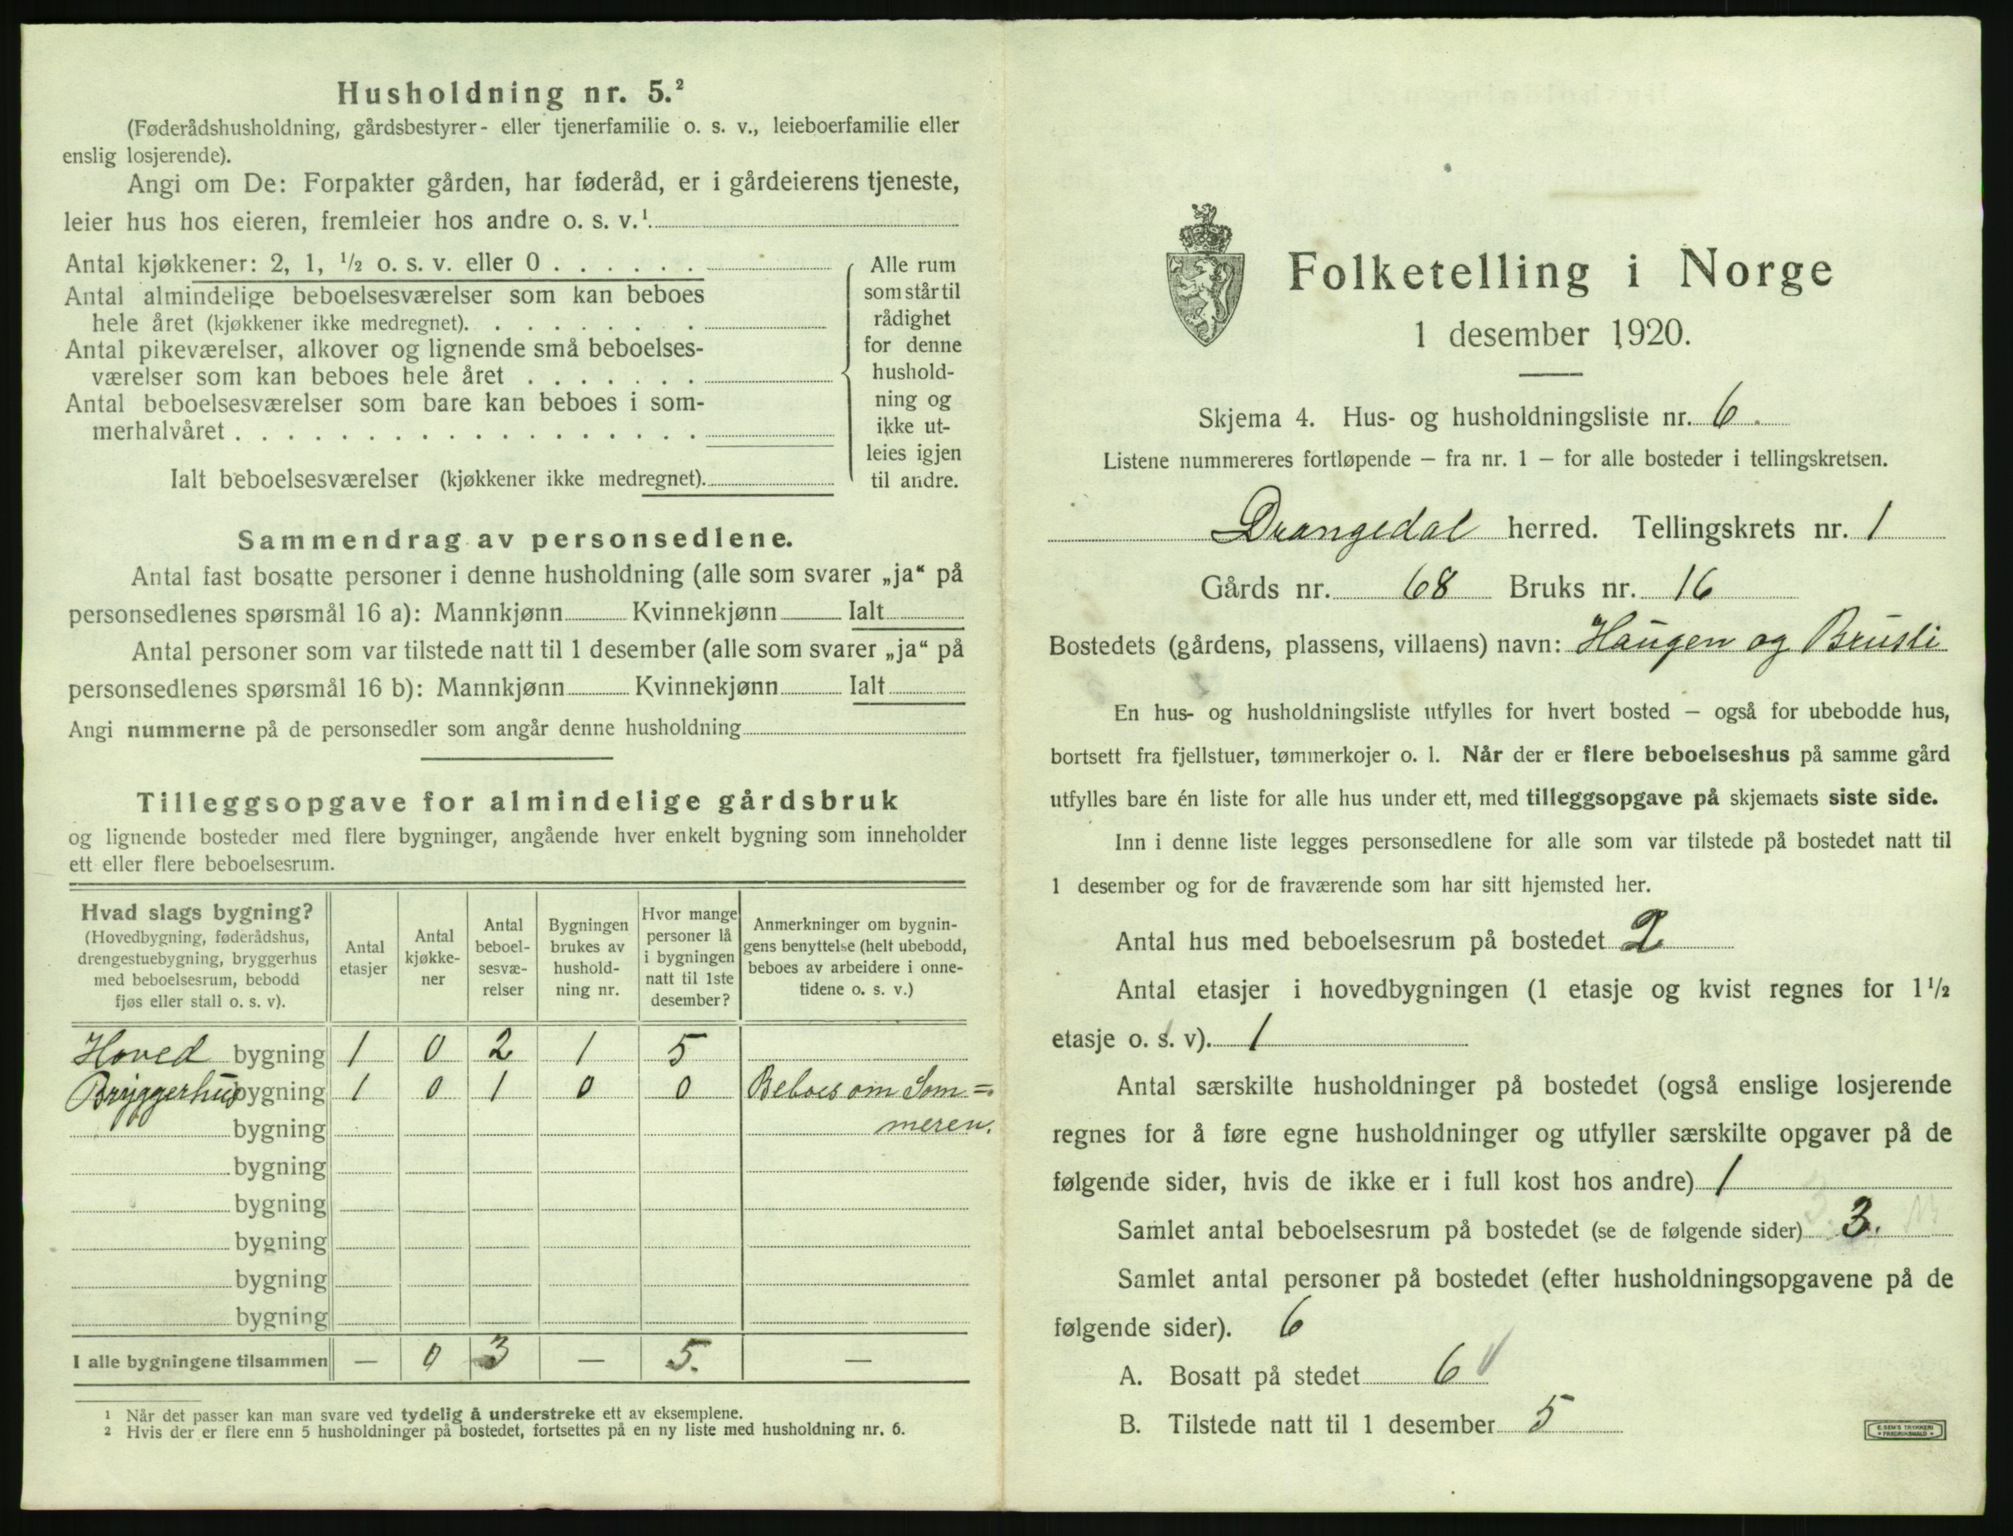 Husholdning nr. 5.²
(Føderådshusholdning, gårdsbestyrer- eller tjenerfamilie o. s. v., leieboerfamilie eller
enslig losjerende).
Angi om De: Forpakter gården, har føderåd, er i gårdeierens tjeneste,
leier hus hos eieren, fremleier hos andre o. s. v.¹
Antal kjøkkener: 2, 1, ½ o. s. v. eller 0
Antal almindelige beboelsesværelser som kan beboes
hele året (kjøkkener ikke medregnet)
Antal pikeværelser, alkover og lignende små beboelses-
værelser som kan beboes hele året
Antal beboelsesværelser som bare kan beboes i som-
merhalvåret
Ialt beboelsesværelser (kjøkkener ikke medregnet)
Alle rum
som står til
rådighet
for denne
hushold-
ning og
ikke ut-
leies igjen
til andre.
Sammendrag av personsedlene.
Antal fast bosatte personer i denne husholdning (alle som svarer „ja“ på
personsedlenes spørsmål 16 a): Mannkjønn Kvinnekjønn Ialt
Antal personer som var tilstede natt til 1 desember (alle som svarer „ja“ på
personsedlenes spørsmål 16 b): Mannkjønn Kvinnekjønn Ialt
Angi nummerne på de personsedler som angår denne husholdning
Tilleggsopgave for almindelige gårdsbruk
og lignende bosteder med flere bygninger, angående hver enkelt bygning som inneholder
ett eller flere beboelsesrum.
Hvad slags bygning?
(Hovedbygning, føderådshus,
drengestuebygning, bryggerhus
med beboelsesrum, bebodd
fjøs eller stall o. s. v).
Antal
etasjer
Antal
kjøkke-
ner
Antal
beboel-
sesvæ-
relser
Bygningen
brukes av
hushold-
ning nr.
Hvor mange
personer lå
i bygningen
natt til 1ste
desember?
Anmerkninger om bygnin-
gens benyttelse (helt ubebodd,
beboes av arbeidere i onne-
tidene o. s. v.)
Hoved bygning 1 0 2 1 5
Bryggerhus bygning 1 0 1 0 0 Beboes om Som=
bygning meren.
bygning
bygning
bygning
bygning
bygning
I alle bygningene tilsammen — 0 3 — 5. —
¹ Når det passer kan man svare ved tydelig å understreke ett av eksemplene.
² Hvis der er flere enn 5 husholdninger på bostedet, fortsettes på en ny liste med husholdning nr. 6.
Folketelling i Norge
1 desember 1920.
Skjema 4. Hus- og husholdningsliste nr. 6.
Listene nummereres fortløpende — fra nr. 1 — for alle bosteder i tellingskretsen.
Drangedal herred. Tellingskrets nr. 1
Gårds nr. 68 Bruks nr. 16
Bostedets (gårdens, plassens, villaens) navn: Haugen og Brusli
En hus- og husholdningsliste utfylles for hvert bosted — også for ubebodde hus,
bortsett fra fjellstuer, tømmerkojer o. l. Når der er flere beboelseshus på samme gård
utfylles bare én liste for alle hus under ett, med tilleggsopgave på skjemaets siste side.
Inn i denne liste legges personsedlene for alle som var tilstede på bostedet natt til
1 desember og for de fraværende som har sitt hjemsted her.
Antal hus med beboelsesrum på bostedet 2
Antal etasjer i hovedbygningen (1 etasje og kvist regnes for 1½
etasje o. s. v). 1
Antal særskilte husholdninger på bostedet (også enslige losjerende
regnes for å føre egne husholdninger og utfyller særskilte opgaver på de
følgende sider, hvis de ikke er i full kost hos andre) 1
Samlet antal beboelsesrum på bostedet (se de følgende sider) 3.
Samlet antal personer på bostedet (efter husholdningsopgavene på de
følgende sider). 6
A. Bosatt på stedet 6
B. Tilstede natt til 1 desember 5
E. SEM'S TRYKKERI
FREDRIKSHALD